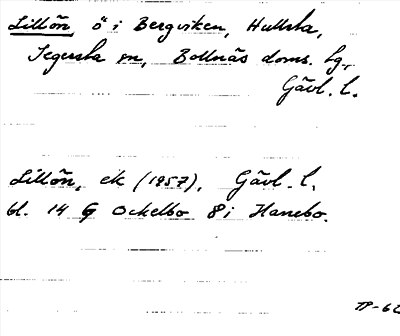 Lillön ö i Bergviken, Hullsta,
Segersta sn, Bollnäs doms. tg,
Gävl. l.
Lillön, ek (1957), Gävl. l.
bl. 14 G Ockelbo 8 i Hanebo.
TP-62